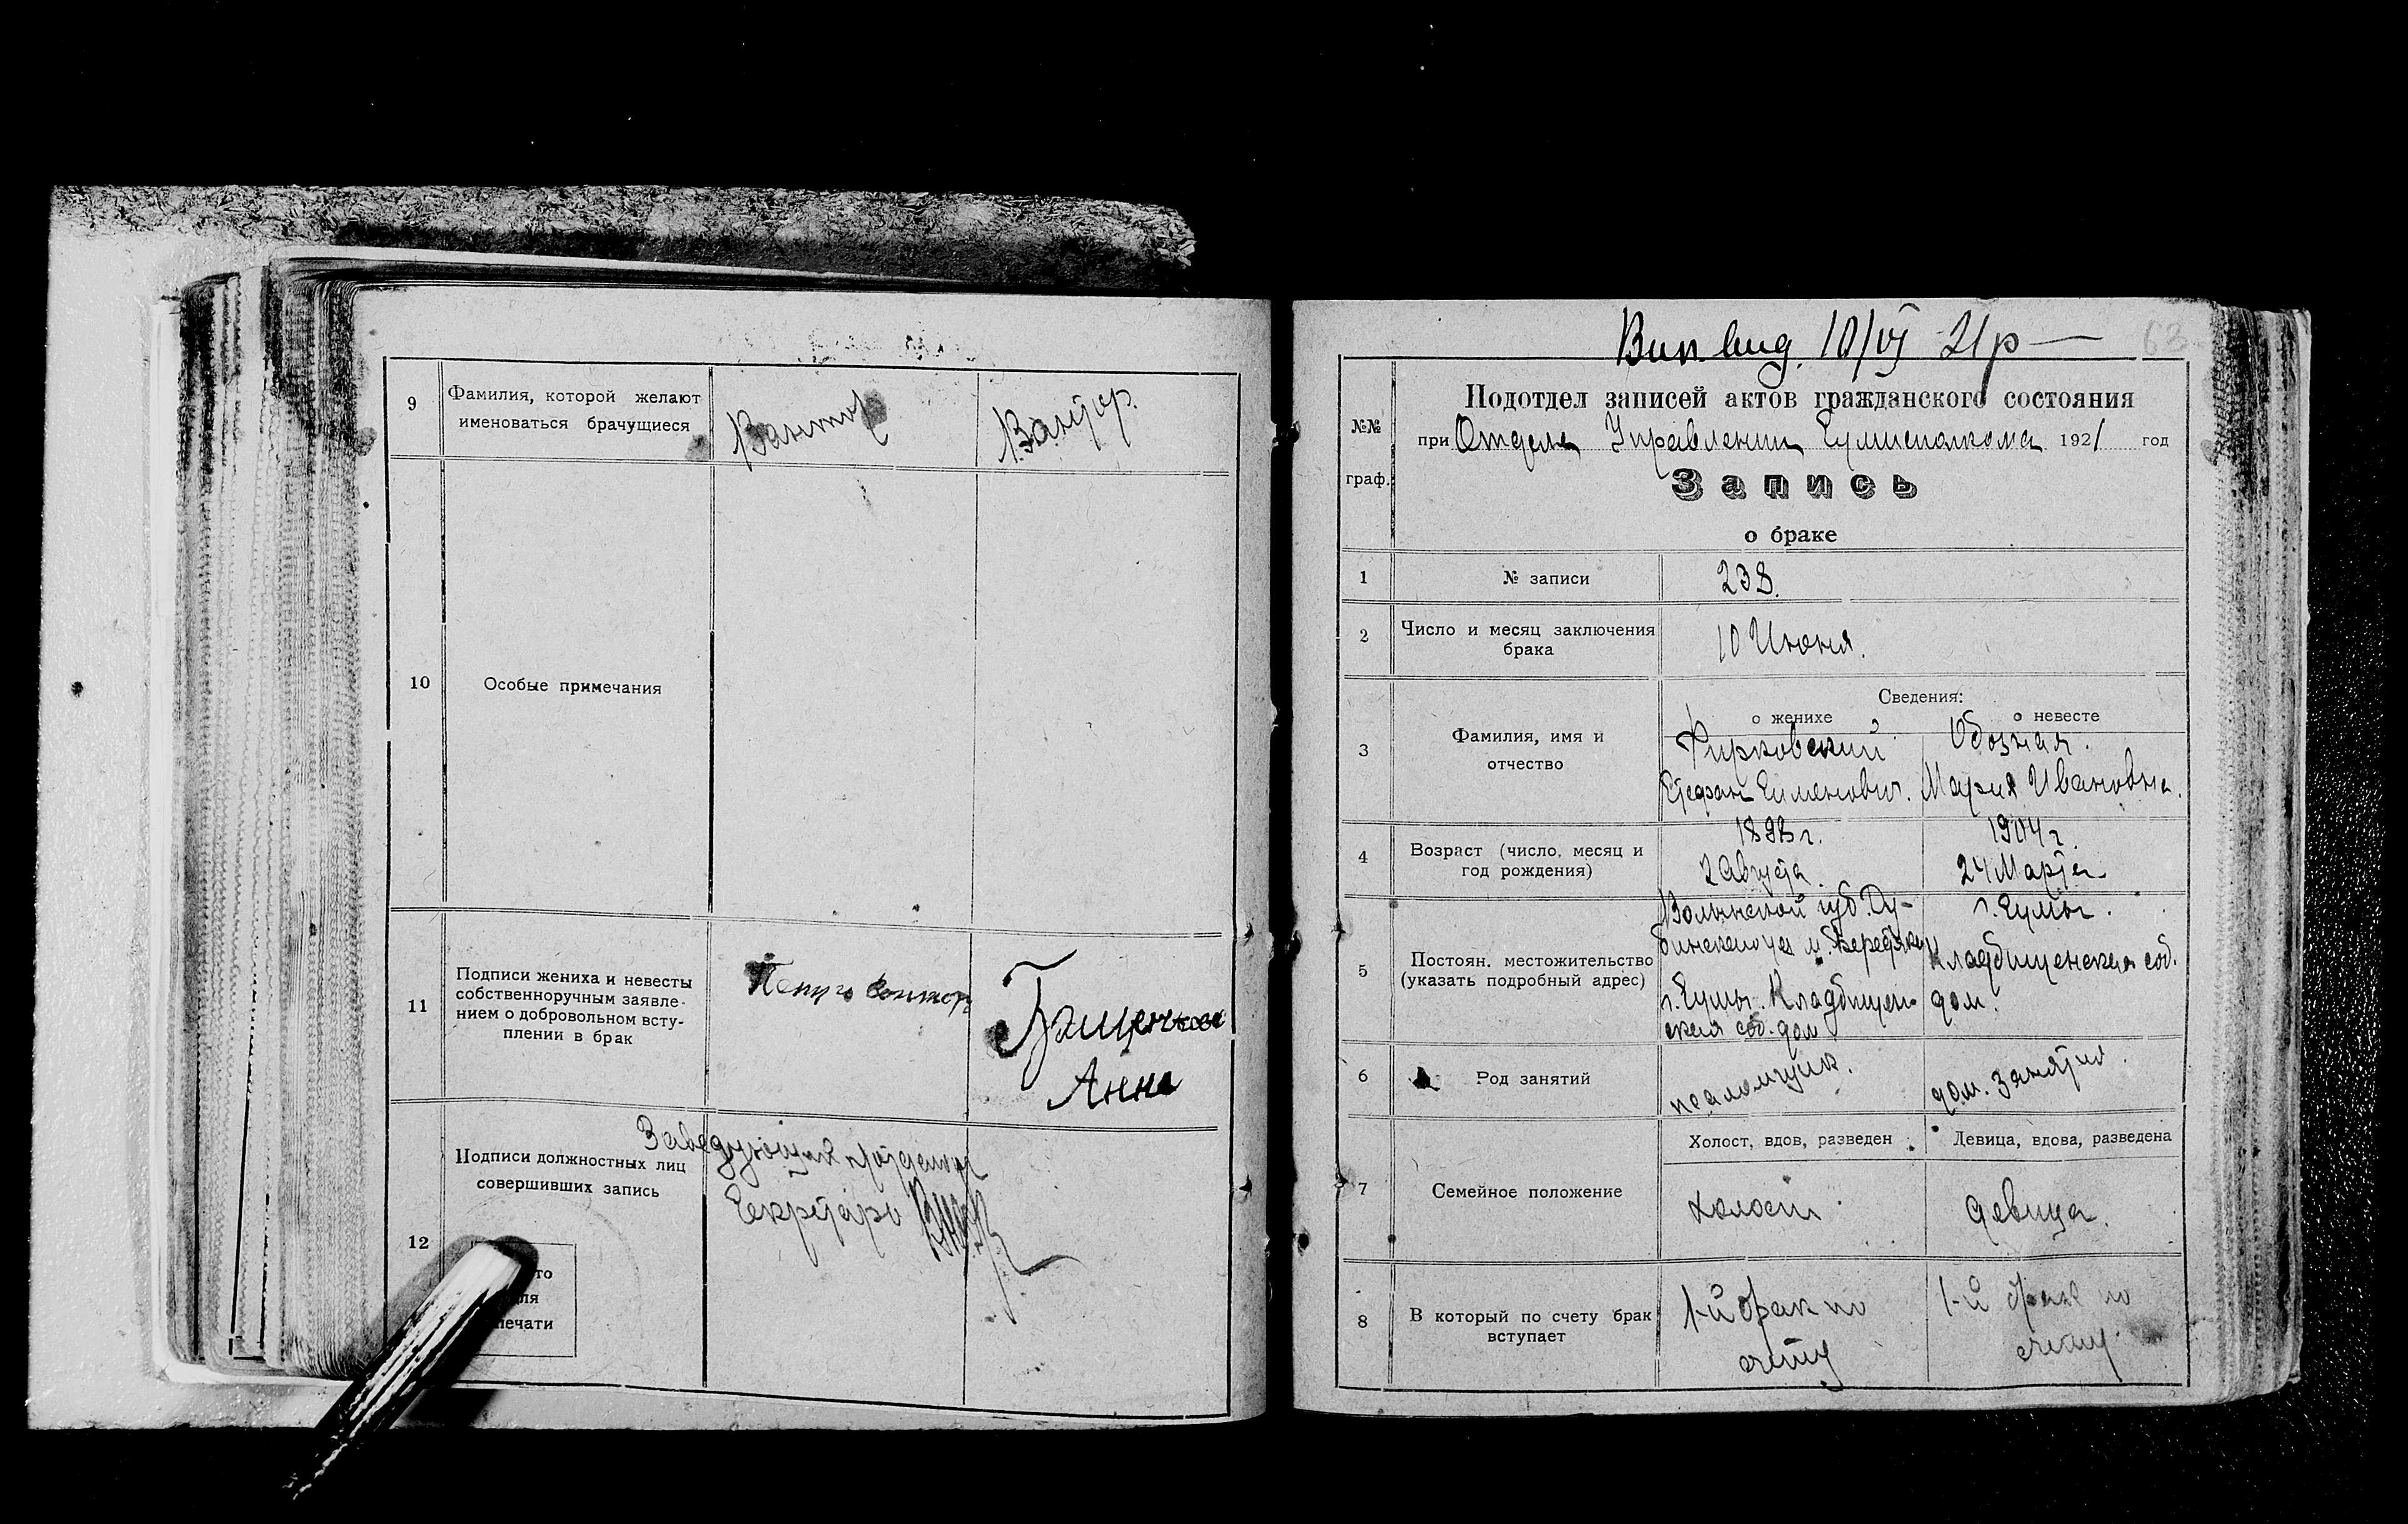 9
Фамилия, которой желают
именоваться брачущиеся
Вантор
Вантор.
10
Особые примечания
11
Подписи жениха и невесты
собственноручным заявле-
нием о добровольном всту-
плении в брак
Анна
12
Подписи должностных лиц
совершивших запись
Заведующий подотделом
Секретарь
печати
63
Вип. вид. 10/VI 21р —
№№
граф.
Подотдел записей актов гражданского состояния
при Отделе Управления Сумисполкома 1921 год
Запись
о браке
1
№ записи
238.
2
Число и месяц заключения
брака
10 Июня.
Сведения:
о женихе
о невесте
3
Фамилия, имя и
отчество
Фирковский
Стефан Семенович.
Обозная.
Мария Ивановна.
4
Возраст (число, месяц и
год рождения)
2 Августа.
1904 г.
24 Марта
5
Постоян. местожительство
(указать подробный адрес)
Волынской губ. Ду-
бинского уез м.
г. Сумы. Кладбищен-
ская соб. дом
г. Сумы.
Кладбищенская соб.
дом.
6
Род занятий
псаломщик.
дом. занятия.
7
Семейное положение
Холост, вдов, разведен
холост.
Девица, вдова, разведена
девица.
8
В который по счету брак
вступает
1-й брак по
счету
1-й брак по
счету.